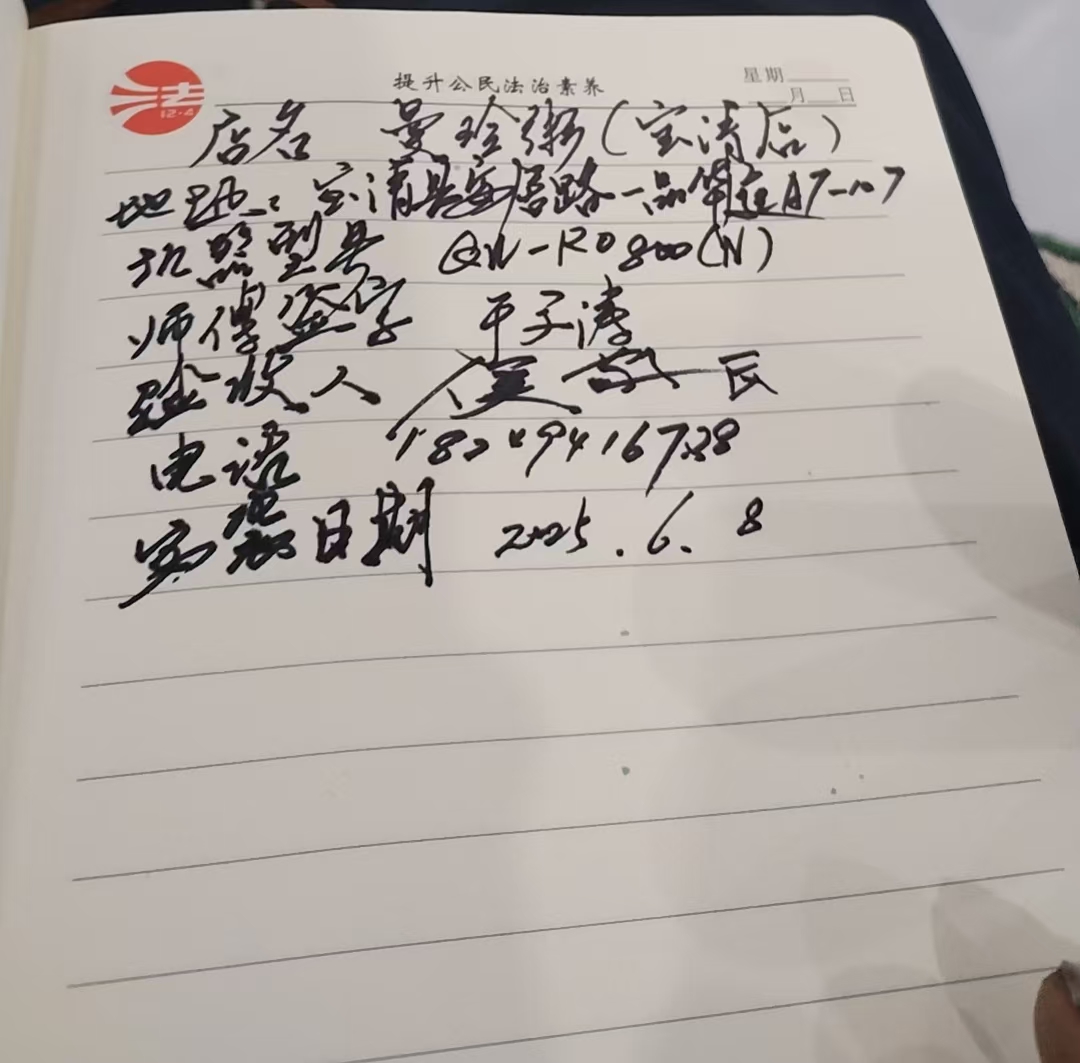 法
12·4
提升公民法治素养
星期
月 日
店名 曼玲粥(宝清店)
地址:宝清县 路一品华庭A7-107
机器型号 QW-RO800(N)
师傅签字 于子涛
验收人
电话 18249416728
安装日期 2025.6.8